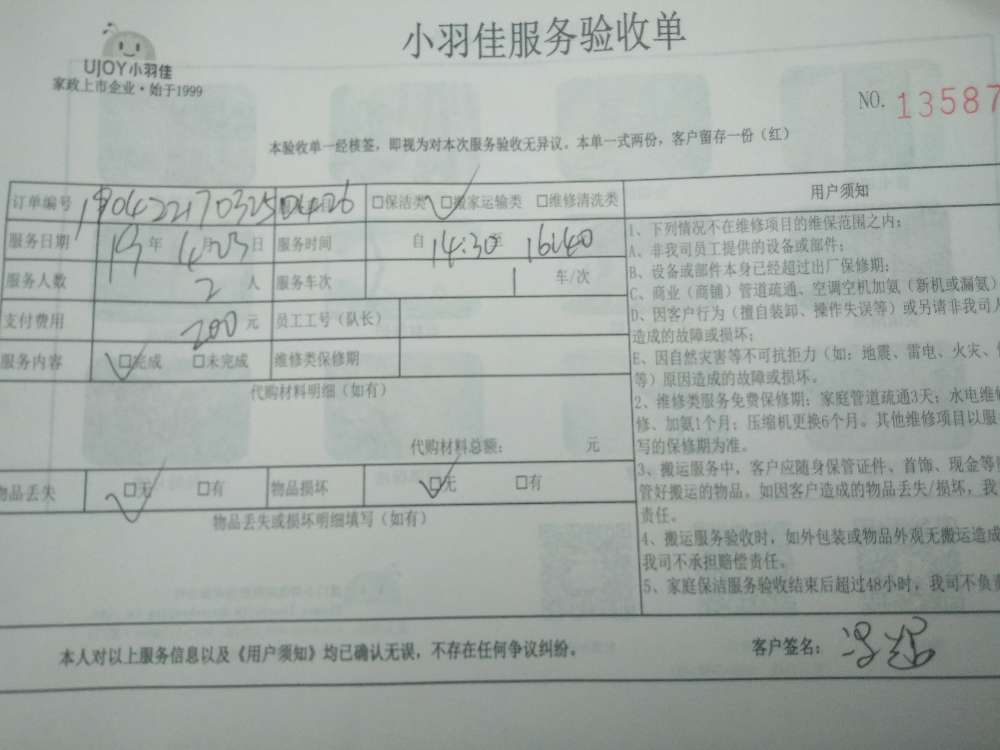 小羽佳服务验收单
UJOY小羽佳
家政上市企业·始于1999
NO. 13587
本验收单一经核签，即视为对本次服务验收无异议。本单一式两份，客户留存一份（红）
订单编号 □保洁类 □搬家运输类 □维修清洗类
服务日期 19年 4月23日 服务时间 自 14:30 至 16:40
服务人数 2 人 服务车次 1 车/次
支付费用 200 元 员工工号（队长）
服务内容 □完成 □未完成 维修类保修期
代购材料明细（如有）
代购材料总额： 元
物品丢失 □无 □有 物品损坏 □无 □有
物品丢失或损坏明细填写（如有）
用户须知
1、下列情况不在维修项目的维保范围之内：
A、非我司员工提供的设备或部件；
B、设备或部件本身已经超过出厂保修期；
C、商业（商铺）管道疏通、空调空机加氨（新机或漏氨）
D、因客户行为（擅自装卸、操作失误等）或另请非我司人
造成的故障或损坏；
E、因自然灾害等不可抗拒力（如：地震、雷电、火灾、
等）原因造成的故障或损坏。
2、维修类服务免费保修期：家庭管道疏通3天；水电维
修、加氨1个月；压缩机更换6个月。其他维修项目以服
写的保修期为准。
3、搬运服务中，客户应随身保管证件、首饰、现金等
管好搬运的物品。如因客户造成的物品丢失/损坏，我
责任。
4、搬运服务验收时，如外包装或物品外观无搬运造成
我司不承担赔偿责任。
5、家庭保洁服务验收结束后超过48小时，我司不负责
本人对以上服务信息以及《用户须知》均已确认无误，不存在任何争议纠纷。 客户签名：